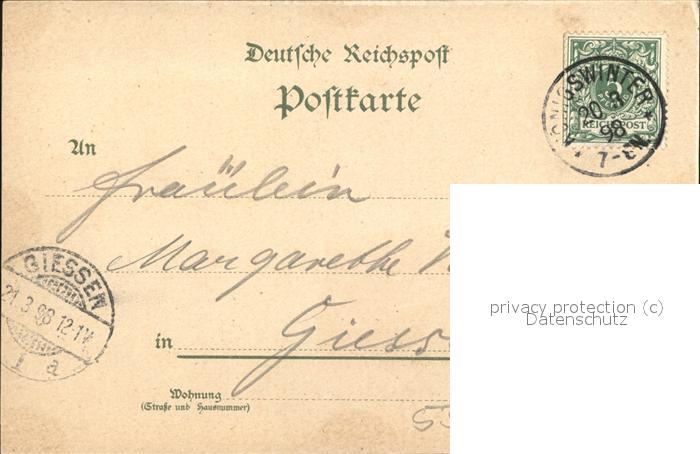 Deutsche Reichspost
Postkarte
KÖNIGSWINTER
20 3
98
7-8N.
REICHSPOST
An
Fräulein
Margarethe
GIESSEN
21.3.98 12-1V.
1 a
in Giess
Wohnung
(Straße und Hausnummer)
privacy protection (c)
Datenschutz